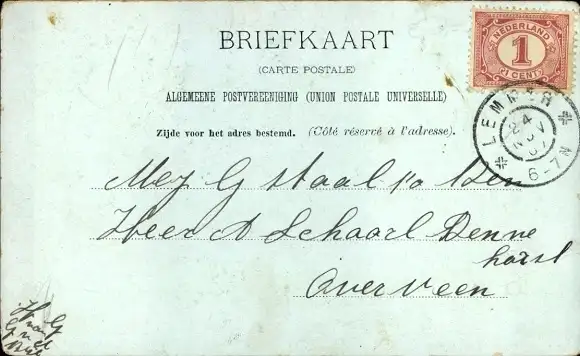 BRIEFKAART
(CARTE POSTALE)
ALGEMEENE POSTVEREENIGING (UNION POSTALE UNIVERSELLE)
Zijde voor het adres bestemd. (Côté réservé à l'adresse).
NEDERLAND
1
1 CENT
LEMMER
24
NOV
07
6-7N
Mej G Staal p/o den
Heer A Schaarl Denne
horst
Overveen